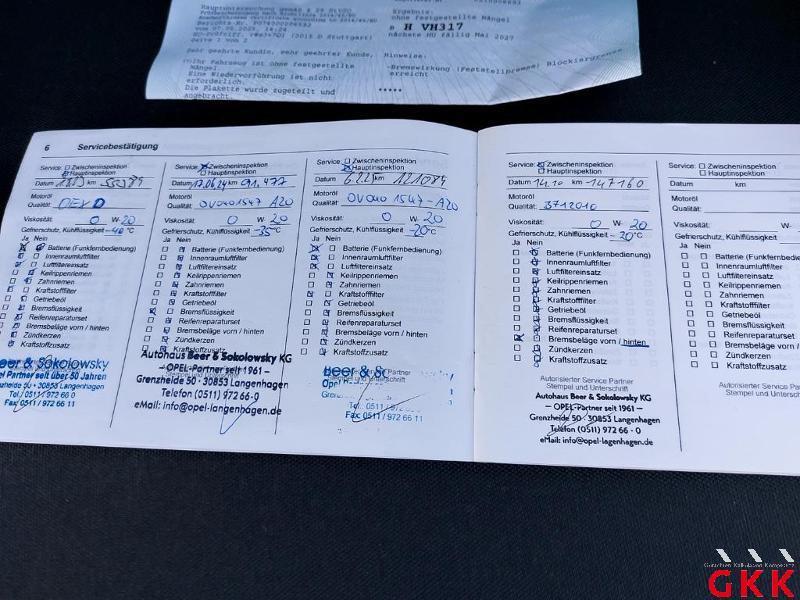 Hauptuntersuchung gemäß § 29 StVZO
Ergebnis:
ohne festgestellte Mängel
H VH317
nächste HU fällig Mai 2027
Sehr geehrte Kundin, sehr geehrter Kunde,
Ihr Fahrzeug ist ohne festgestellte
Mängel.
Eine Wiedervorführung ist nicht
erforderlich.
Die Plakette wurde zugeteilt und
angebracht.
Hinweise:
-Bremswirkung (Feststellbremse) Blockiergrenze
erreicht
*****
6 Servicebestätigung
Service: Zwischeninspektion
Hauptinspektion
Datum km
Motoröl
Qualität:
Viskosität: 0 W- 20
Gefrierschutz, Kühlflüssigkeit -40 °C
Ja Nein
Batterie (Funkfernbedienung)
Innenraumluftfilter
Luftfiltereinsatz
Keilrippenriemen
Zahnriemen
Kraftstofffilter
Getriebeöl
Bremsflüssigkeit
Reifenreparaturset
Bremsbeläge vorn / hinten
Zündkerzen
Kraftstoffzusatz
Beer & Sokolowsky
Opel Partner seit über 50 Jahren
Grenzheide 50 · 30853 Langenhagen
Tel. 0511 / 972 66 0
Fax 0511 / 972 66 11
Service: Zwischeninspektion
Hauptinspektion
Datum 17.06.24 km 91.477
Motoröl
Qualität: OV0401547 A20
Viskosität: 0 W- 20
Gefrierschutz, Kühlflüssigkeit -35 °C
Ja Nein
Batterie (Funkfernbedienung)
Innenraumluftfilter
Luftfiltereinsatz
Keilrippenriemen
Zahnriemen
Kraftstofffilter
Getriebeöl
Bremsflüssigkeit
Reifenreparaturset
Bremsbeläge vorn / hinten
Zündkerzen
Kraftstoffzusatz
Autohaus Beer & Sokolowsky KG
– OPEL-Partner seit 1961 –
Grenzheide 50 · 30853 Langenhagen
Telefon (0511) 972 66 - 0
eMail: info@opel-langenhagen.de
Service: Zwischeninspektion
Hauptinspektion
Datum 6.2.25 km 121084
Motoröl
Qualität: OV040 1547-A20
Viskosität: 0 W- 20
Gefrierschutz, Kühlflüssigkeit -20 °C
Ja Nein
Batterie (Funkfernbedienung)
Innenraumluftfilter
Luftfiltereinsatz
Keilrippenriemen
Zahnriemen
Kraftstofffilter
Getriebeöl
Bremsflüssigkeit
Reifenreparaturset
Bremsbeläge vorn / hinten
Zündkerzen
Kraftstoffzusatz
Tel. 0511 /
Fax 0511 / 972 66 11
Service: Zwischeninspektion
Hauptinspektion
Datum 14.10 km 147160
Motoröl
Qualität: 3712010
Viskosität: 0 W- 20
Gefrierschutz, Kühlflüssigkeit -20 °C
Ja Nein
Batterie (Funkfernbedienung)
Innenraumluftfilter
Luftfiltereinsatz
Keilrippenriemen
Zahnriemen
Kraftstofffilter
Getriebeöl
Bremsflüssigkeit
Reifenreparaturset
Bremsbeläge vorn / hinten
Zündkerzen
Kraftstoffzusatz
Autorisierter Service Partner
Stempel und Unterschrift
Autohaus Beer & Sokolowsky KG
– OPEL-Partner seit 1961 –
Grenzheide 50 · 30853 Langenhagen
Telefon (0511) 972 66 - 0
eMail: info@opel-langenhagen.de
Service: Zwischeninspektion
Hauptinspektion
Datum km
Motoröl
Qualität:
Viskosität: W-
Gefrierschutz, Kühlflüssigkeit
Ja Nein
Batterie (Funkfernbedienung)
Innenraumluftfilter
Luftfiltereinsatz
Keilrippenriemen
Zahnriemen
Kraftstofffilter
Getriebeöl
Bremsflüssigkeit
Reifenreparaturset
Bremsbeläge vorn / hinten
Zündkerzen
Kraftstoffzusatz
Autorisierter Service Partner
Stempel und Unterschrift
GKK